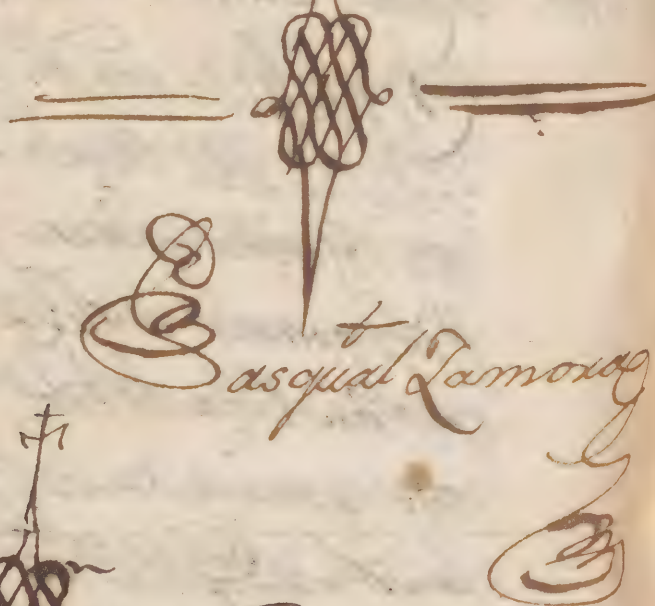 Pasqual Zamora